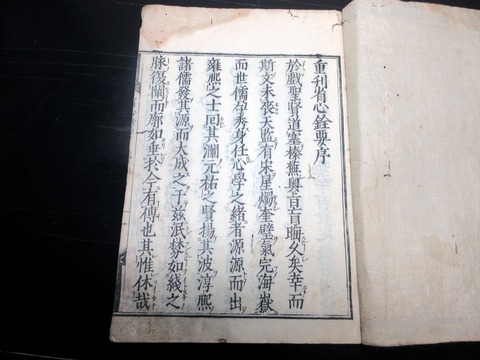 重刋省心銓要序
於戲聖賢道塞榛蕪奧旨盲晦久矣幸而
斯文未喪天監有宋星燭奎壁氣完海嶽
而世儒孕秀身任心學之緒者源源而出
雍熙之士回其瀾元祐之賢揚其波淳熙
諸儒發其源而大成之于兹泯棼如綫之
脉復闡而廓如垂於今有傳也其惟休哉